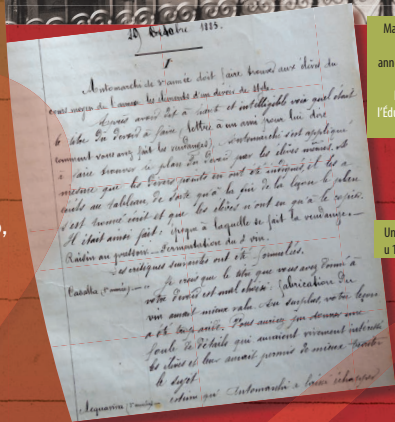 29 Octobre 1885.
1
Antomarchi de 3e année doit faire trouver aux élèves du
cours moyen de l'annexe les éléments d'un devoir de style.
Après avoir dit à écrit et intelligible voix quel était
le titre du devoir à faire (lettre à un ami pour lui dire
comment vous avez fait les vendanges), Antomarchi s'est appliqué
à faire trouver le plan du devoir par les élèves mêmes, et
mesure que les divers points en ont été indiqués, il les a
écrits au tableau, de sorte qu'à la fin de la leçon le plan
s'est trouvé écrit et que les élèves n'ont eu qu'à le copier.
Il était ainsi fait: époque à laquelle se fait la vendange. —
Raisin au pressoir. — Fermentation du vin.
Les critiques suivantes ont été formulées.
Casalta, Je crois que le titre que vous avez donné à
votre devoir est mal choisi: fabrication du
vin aurait mieux valu. Au surplus, votre leçon
a été trop aride. Vous auriez pu donner une
foule de détails qui auraient vivement intéressé
les élèves et leur aurait permis de mieux traiter
le sujet.
Acquaviva, estime qu' Antomarchi a laissé échapper
Ma
ann
l'Éd
Un
u 1